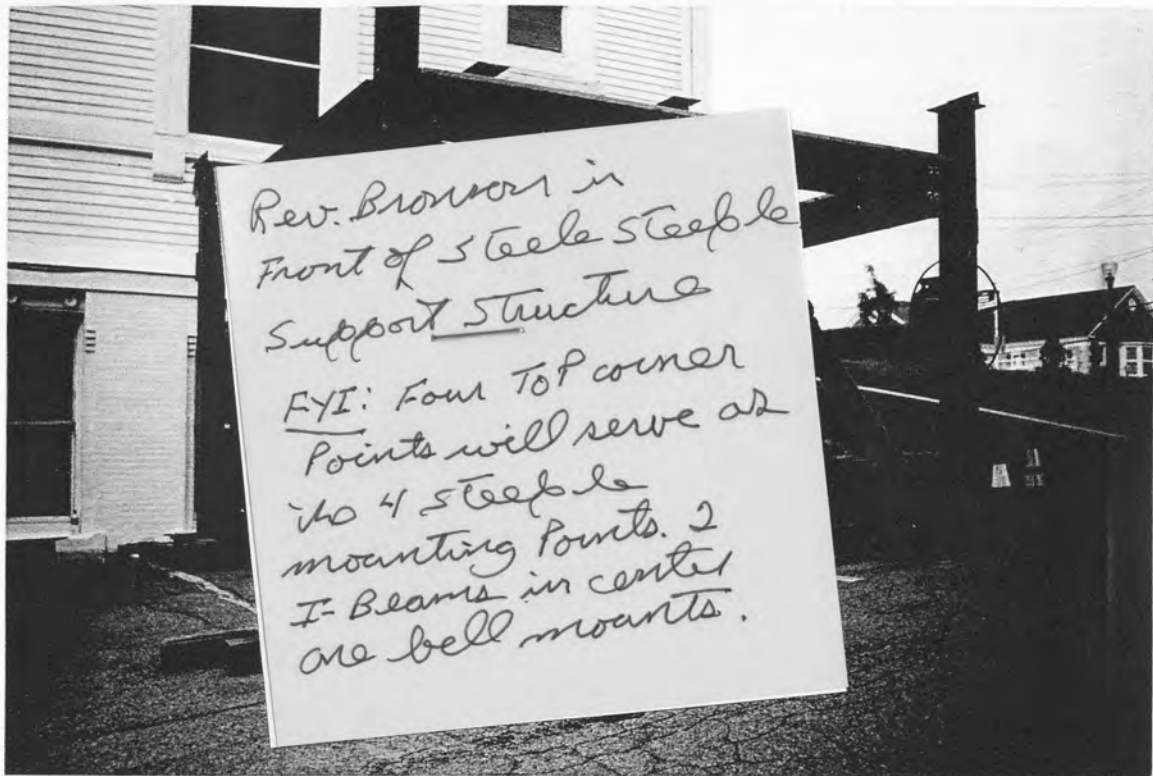 Rev. Bronson in
Front of Steele Steeple
Support Structure
FYI: Four Top corner
Points will serve as
its 4 steeple
mounting Points. 2
I-Beams in center
are bell mounts.